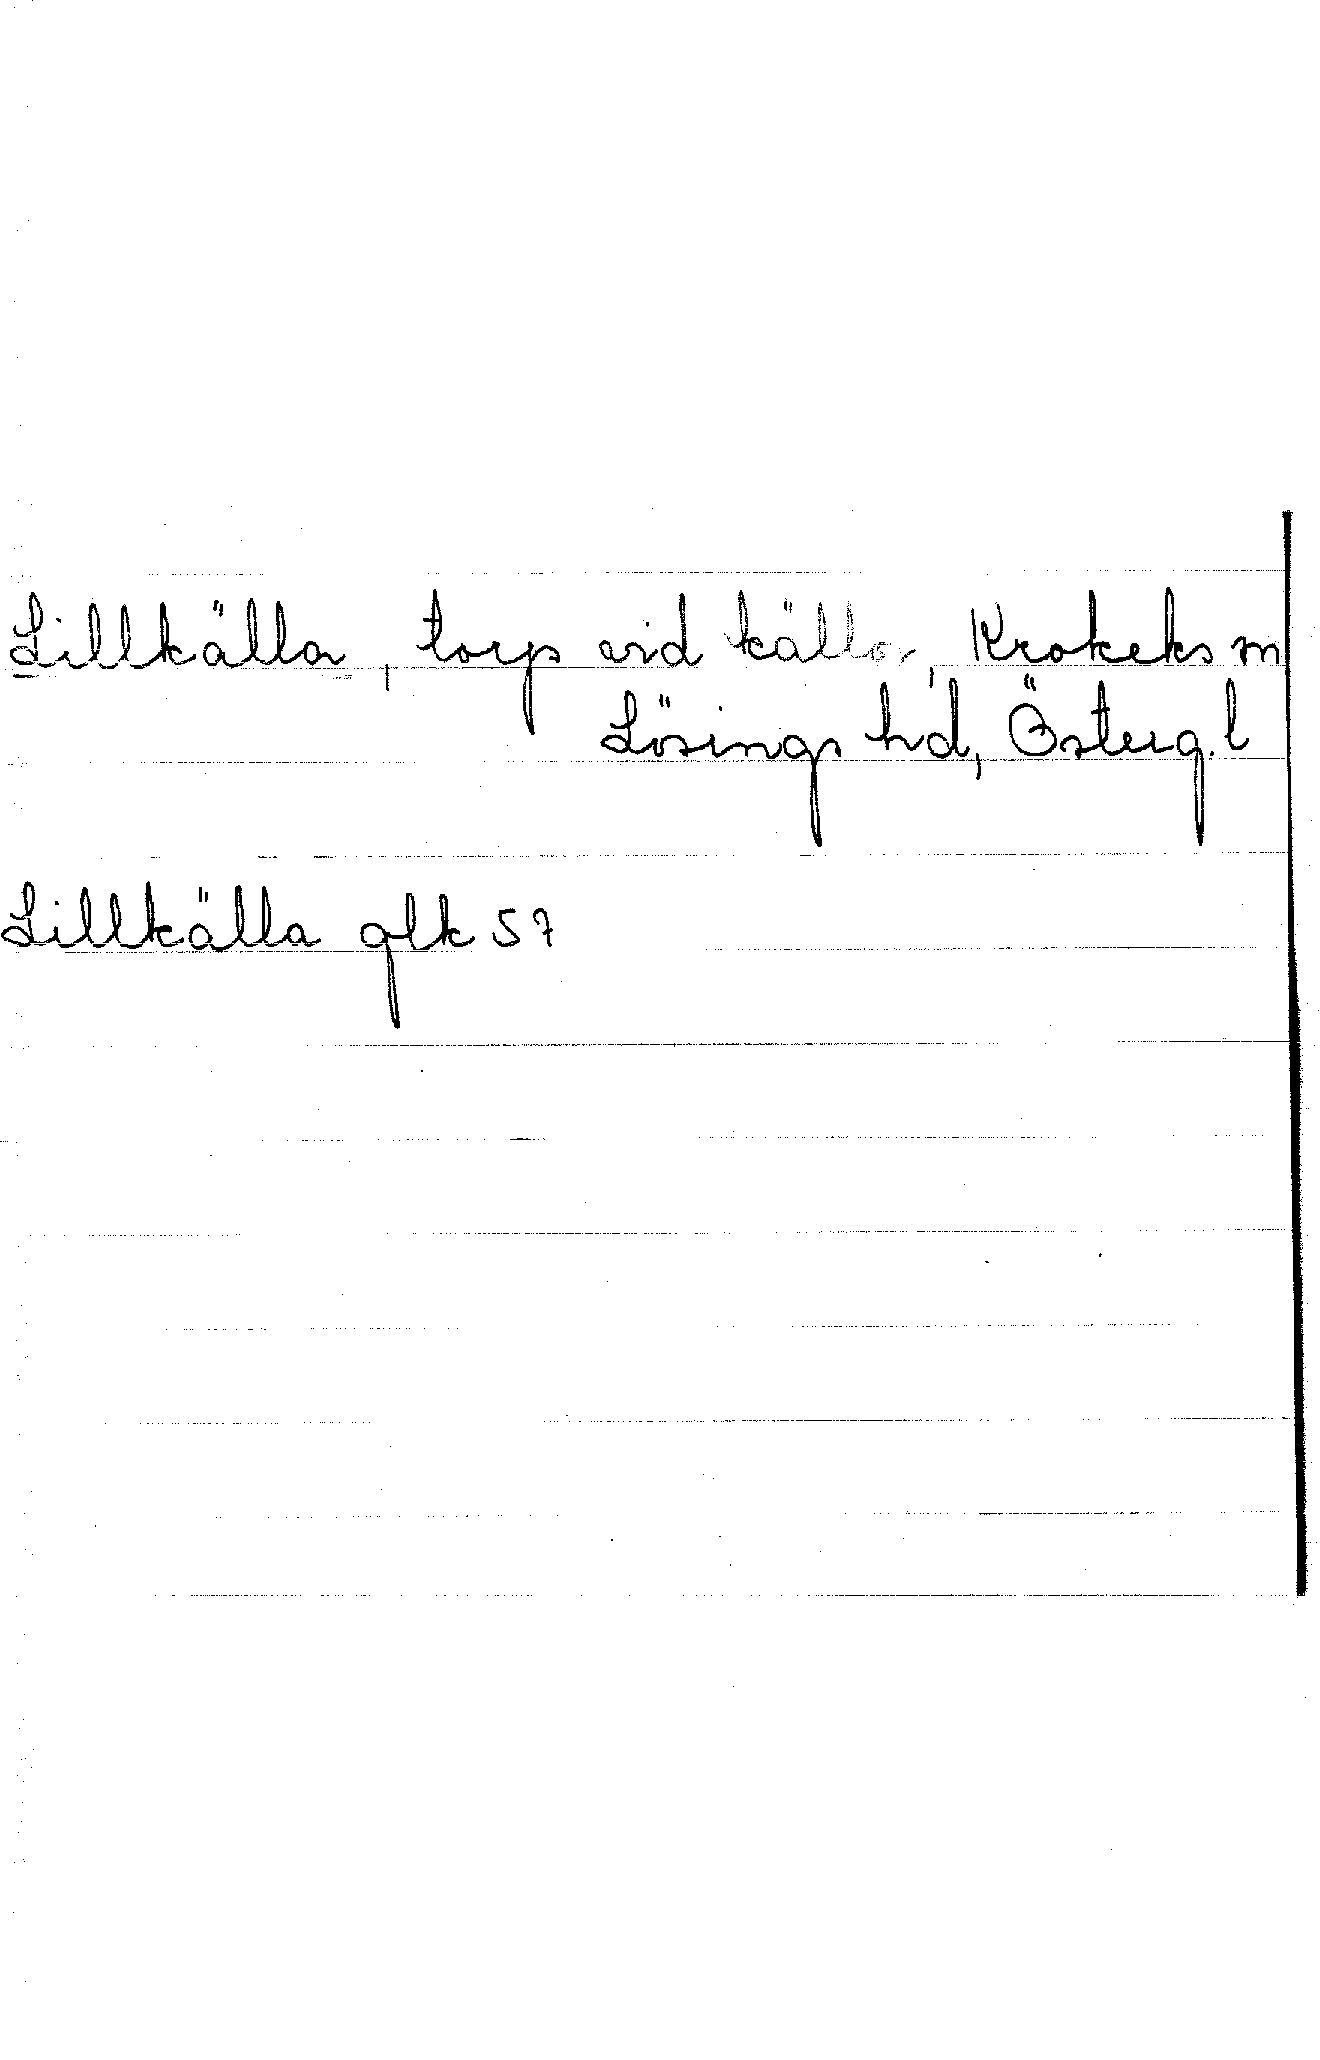 Lillkälla, torp vid källa, Krokeks sn
Lösings hd, Österg. l
Lillkälla glk 57